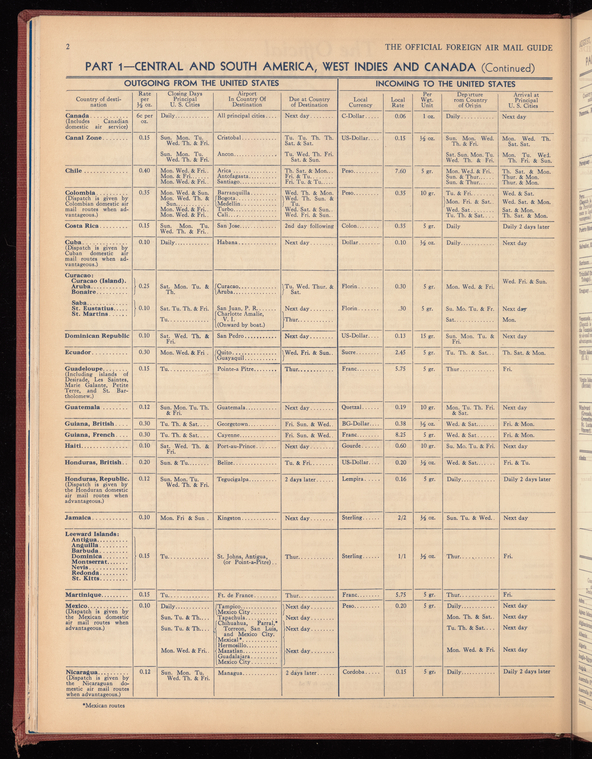 2 THE OFFICIAL FOREIGN AIR MAIL GUIDE
PART 1—CENTRAL AND SOUTH AMERICA, WEST INDIES AND CANADA (Continued)
OUTGOING FROM THE UNITED STATES INCOMING TO THE UNITED STATES
Country of destination Rate per ½ oz. Closing Days Principal U. S. Cities Airport In Country Of Destination Due at Country of Destination Local Currency Local Rate Per Wgt. Unit Departure from Country of Origin Arrival at Principal U. S. Cities
Canada (Includes Canadian domestic air service) 6c per oz. Daily All principal cities Next day C-Dollar 0.06 1 oz. Daily Next day
Canal Zone 0.15 Sun. Mon. Tu. Wed. Th. & Fri. Cristobal Tu. Tu. Th. Th. Sat. & Sat. US-Dollar 0.15 ½ oz. Sun. Mon. Wed. Th. & Fri. Mon. Wed. Th. Sat. Sat.
Sun. Mon. Tu. Wed. Th. & Fri. Ancon Tu. Wed. Th. Fri. Sat. & Sun. Sat. Sun. Mon. Tu. Wed. Th. & Fri. Mon. Tu. Wed. Th. Fri. & Sun.
Chile 0.40 Mon. Wed. & Fri. Arica Th. Sat. & Mon. Peso 7.60 5 gr. Mon. Wed. & Fri. Th. Sat. & Mon.
Mon. & Fri. Antofagasta Fri. & Tu. Sun. & Thur. Thur. & Mon.
Mon. Wed. & Fri. Santiago Fri. Tu. & Tu. Sun. & Thur. Thur. & Mon.
Colombia (Dispatch is given by Colombian domestic air mail routes when advantageous.) 0.35 Mon. Wed. & Sun. Barranquilla Wed. Th. & Mon. Peso 0.35 10 gr. Tu. & Fri. Wed. & Sat.
Mon. Wed. Th. & Sun. Bogota Wed. Th. Sun. & Tu. Mon. Fri. & Sat. Wed. Sat. & Mon.
Medellin
Mon. Wed. & Fri. Turbo Wed. Sat. & Sun. Wed. Sat. Sat. & Mon.
Mon. Wed. & Fri. Cali Wed. Fri. & Sun. Tu. Th. & Sat. Th. Sat. & Mon.
Costa Rica 0.15 Sun. Mon. Tu. Wed. Th. & Fri. San Jose 2nd day following Colon 0.35 5 gr. Daily Daily 2 days later
Cuba (Dispatch is given by Cuban domestic air mail routes when advantageous.) 0.10 Daily Habana Next day Dollar 0.10 ½ oz. Daily Next day
Curacao:
Curacao (Island).
Aruba
Bonaire 0.25 Sat. Mon. Tu. & Th. Curacao Aruba Tu. Wed. Thur. & Sat. Florin 0.30 5 gr. Mon. Wed. & Fri. Wed. Fri. & Sun.
Saba
St. Eustatius
St. Martins 0.10 Sat. Tu. Th. & Fri. San Juan, P. R. Next day Florin .30 5 gr. Su. Mo. Tu. & Fr. Next day
Tu. Charlotte Amalie, V. I. (Onward by boat.) Thur. Sat. Mon.
Dominican Republic 0.10 Sat. Wed. Th. & Fri. San Pedro Next day US-Dollar 0.13 15 gr. Sun. Mon. Tu. & Fri. Next day
Ecuador 0.30 Mon. Wed. & Fri. Quito Guayaquil Wed. Fri. & Sun. Sucre 2.45 5 gr. Tu. Th. & Sat. Th. Sat. & Mon.
Guadeloupe (Including islands of Desirade, Les Saintes, Marie Galante, Petite Terre, and St. Bartholomew.) 0.15 Tu. Pointe-a Pitre Thur. Franc 5.75 5 gr. Thur. Fri.
Guatemala 0.12 Sun. Mon. Tu. Th. & Fri. Guatemala Next day Quetzal 0.19 10 gr. Mon. Tu. Th. Fri. & Sat. Next day
Guiana, British 0.30 Tu. Th. & Sat. Georgetown Fri. Sun. & Wed. BG-Dollar 0.38 ½ oz. Wed. & Sat. Fri. & Mon.
Guiana, French 0.30 Tu. Th. & Sat. Cayenne Fri. Sun. & Wed. Franc 8.25 5 gr. Wed. & Sat. Fri. & Mon.
Haiti 0.10 Sat. Wed. Th. & Fri. Port-au-Prince Next day Gourde 0.60 10 gr. Su. Mo. Tu. & Fri. Next day
Honduras, British 0.20 Sun. & Tu. Belize Tu. & Fri. US-Dollar 0.20 ½ oz. Wed. & Sat. Fri. & Tu.
Honduras, Republic. (Dispatch is given by the Honduran domestic air mail routes when advantageous.) 0.12 Sun. Mon. Tu. Wed. Th. & Fri. Tegucigalpa 2 days later Lempira 0.16 5 gr. Daily Daily 2 days later
Jamaica 0.10 Mon. Fri & Sun. Kingston Next day Sterling 2/2 ½ oz. Sun. Tu. & Wed. Next day
Leeward Islands:
Antigua
Anguilla
Barbuda
Dominica
Montserrat
Nevis
Redonda
St. Kitts 0.15 Tu. St. Johns, Antigua, (or Point-a-Pitre) Thur. Sterling 1/1 ½ oz. Thur. Fri.
Martinique 0.15 Tu. Ft. de France Thur. Franc 5.75 5 gr. Thur. Fri.
Mexico (Dispatch is given by the Mexican domestic air mail routes when advantageous.) 0.10 Daily Tampico Mexico City Next day Peso 0.20 5 gr. Daily Next day
Sun. Tu. & Th. Tapachula Next day Mon. Th. & Sat. Next day
Sun. Tu. & Th. Chihuahua, Parral,* Torreon, San Luis, and Mexico City. Next day Tu. Th. & Sat. Next day
Mexical*
Mon. Wed. & Fri. Hermosillo Mazatlan Guadalajara Mexico City Next day Mon. Wed. & Fri. Next day
Nicaragua (Dispatch is given by the Nicaraguan domestic air mail routes when advantageous.) 0.12 Sun. Mon. Tu. Wed. Th. & Fri. Managua 2 days later Cordoba 0.15 5 gr. Daily Daily 2 days later
*Mexican routes